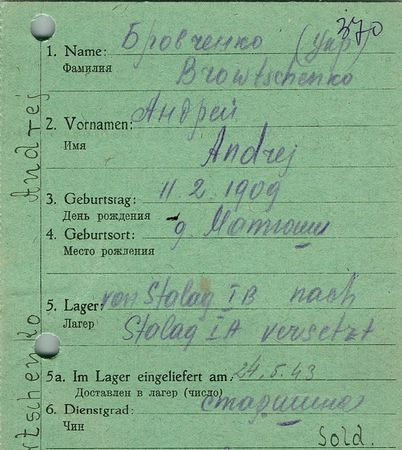 370
1. Name: Бровченко (Укр)
Фамилия Browtschenko
2. Vornamen: Андрей
Имя Andrej
3. Geburtstag: 11 2. 1909
День рождения
4. Geburtsort: д. Матюши
Место рождения
5. Lager: von Stalag IB nach
Лагер Stalag IA versetzt
5a. Im Lager eingeliefert am 24.5.43
Доставлен в лагер (число)
6. Dienstgrad: старшина
Чин Sold.
rtschenko Andrej